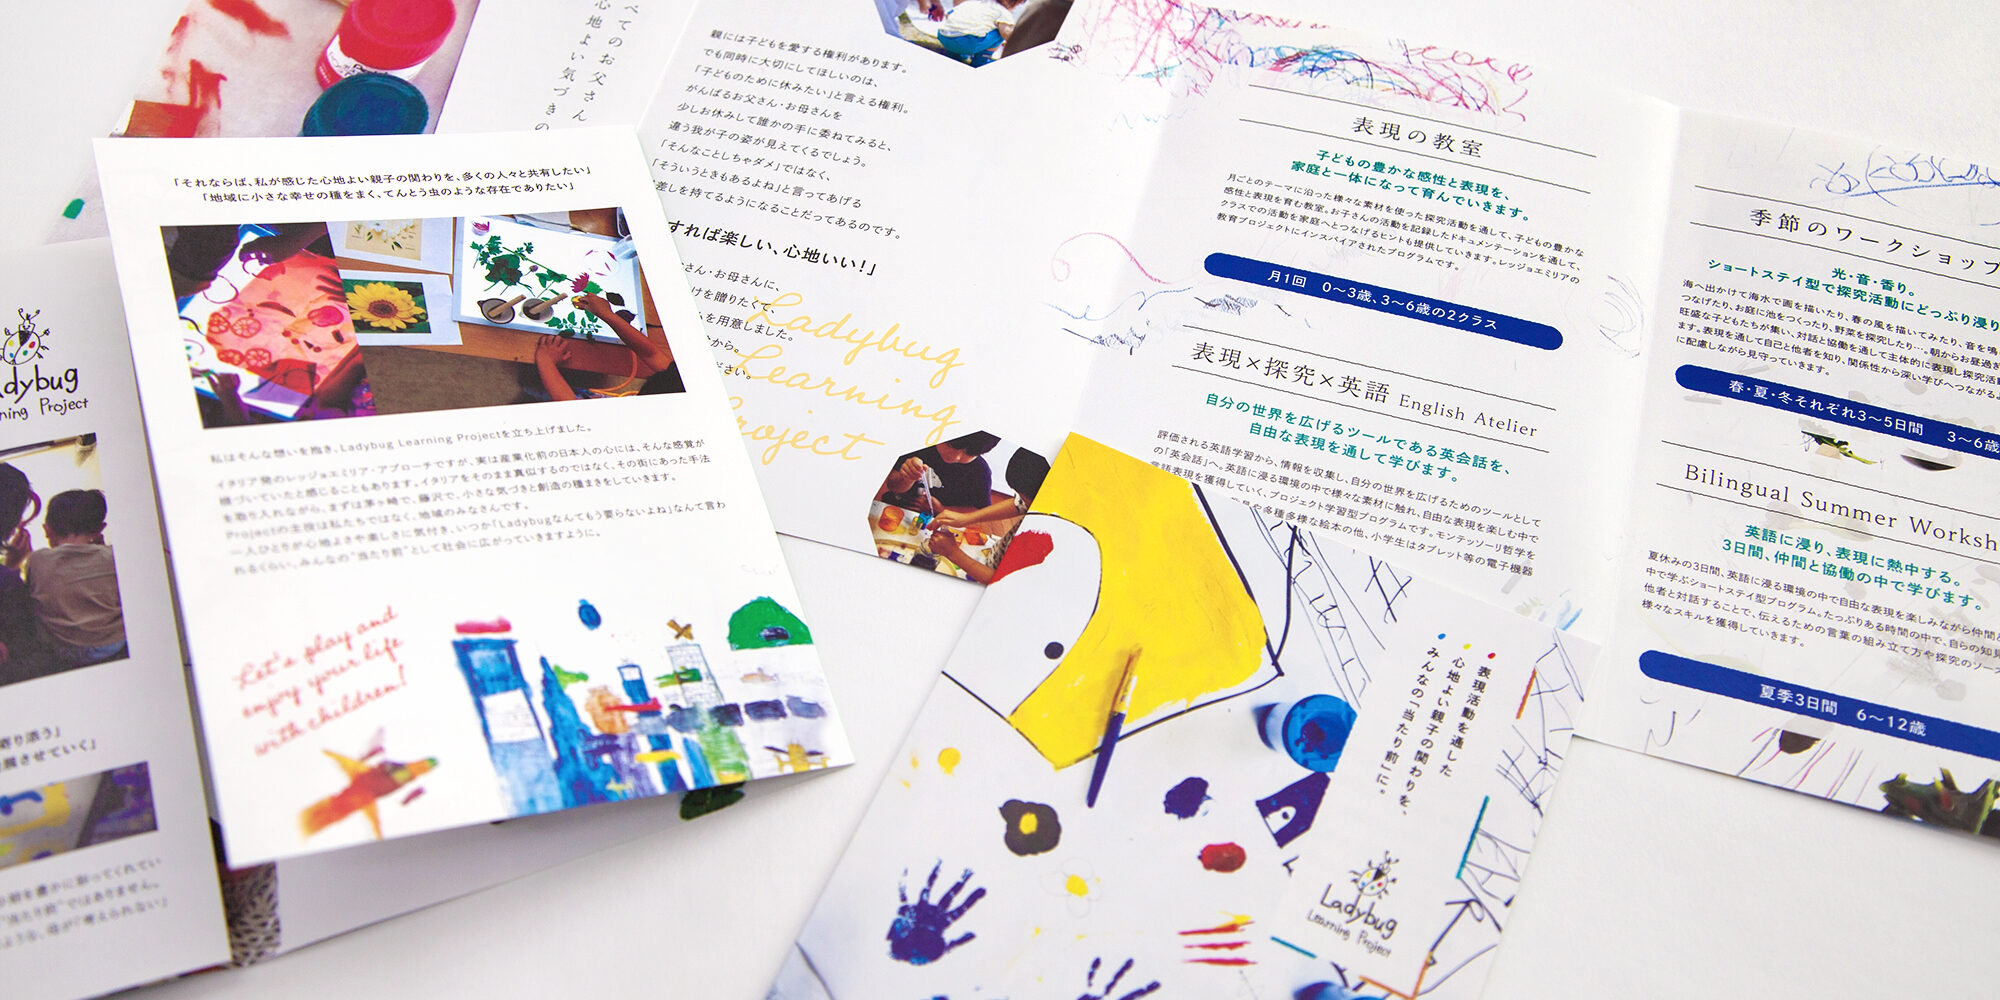 べてのお父さん
心地よい気づきの
親には子どもを愛する権利があります。
でも同時に大切にしてほしいのは、
「子どものために休みたい」と言える権利。
がんばるお父さん・お母さんを
少しお休みして誰かの手に委ねてみると、
違う我が子の姿が見えてくるでしょう。
「そんなことしちゃダメ」ではなく、
「そういうときもあるよね」と言ってあげる
差しを持てるようになることだってあるのです。
すれば楽しい、心地いい！」
さん・お母さんに、
けを贈りたくて、
を用意しました。
から。
ださい。
Ladybug
Learning
Project
「それならば、私が感じた心地よい親子の関わりを、多くの人々と共有したい」
「地域に小さな幸せの種をまく、てんとう虫のような存在でありたい」
私はそんな想いを抱き、Ladybug Learning Projectを立ち上げました。
イタリア発のレッジョエミリア・アプローチですが、実は産業化前の日本人の心には、そんな感覚が
根づいていたと感じることもあります。イタリアをそのまま真似するのではなく、その街にあった手法
を取り入れながら、まずは茅ヶ崎で、藤沢で、小さな気づきと創造の種まきをしていきます。
Projectの主役は私たちではなく、地域のみなさんです。
一人ひとりが心地よさや楽しさに気付き、いつか「Ladybugなんてもう要らないよね」なんて言わ
れるくらい、みんなの"当たり前"として社会に広がっていきますように。
Let's play and
enjoy your life
with children!
adybug
rning Project
寄り添う」
展させていく」
"当たり前"ではありません。
表現の教室
子どもの豊かな感性と表現を、
家庭と一体になって育んでいきます。
月ごとのテーマに沿った様々な素材を使った探究活動を通して、子どもの豊かな
感性と表現を育む教室。お子さんの活動を記録したドキュメンテーションを通して、
クラスでの活動を家庭へとつなげるヒントも提供していきます。レッジョエミリアの
教育プロジェクトにインスパイアされたプログラムです。
月1回　0〜3歳、3〜6歳の2クラス
表現×探究×英語 English Atelier
自分の世界を広げるツールである英会話を、
自由な表現を通して学びます。
評価される英語学習から、情報を収集し、自分の世界を広げるためのツールとして
の「英会話」へ。英語に浸る環境の中で様々な素材に触れ、自由な表現を楽しむ中で
言語表現を獲得していく、プロジェクト学習型プログラムです。モンテッソーリ哲学を
具や多種多様な絵本の他、小学生はタブレット等の電子機器
季節のワークショップ
光・音・香り。
ショートステイ型で探究活動にどっぷり浸り
海へ出かけて海水で画を描いたり、春の風を描いてみたり、音を鳴
つなげたり、お庭に池をつくったり、野菜を探究したり…。朝からお昼過ぎ
旺盛な子どもたちが集い、対話と協働を通して主体的に表現し探究活動
ます。表現を通して自己と他者を知り、関係性から深い学びへつながるよ
に配慮しながら見守っていきます。
春・夏・冬それぞれ3〜5日間　3〜6歳
Bilingual Summer Worksh
英語に浸り、表現に熱中する。
3日間、仲間と協働の中で学びます。
夏休みの3日間、英語に浸る環境の中で自由な表現を楽しみながら仲間と
中で学ぶショートステイ型プログラム。たっぷりある時間の中で、自らの知見
他者と対話することで、伝えるための言葉の組み立て方や探究のソース
様々なスキルを獲得していきます。
夏季3日間　6〜12歳
表現活動を通した
心地よい親子の関わりを、
みんなの「当たり前」に。
Ladybug
Learning Project